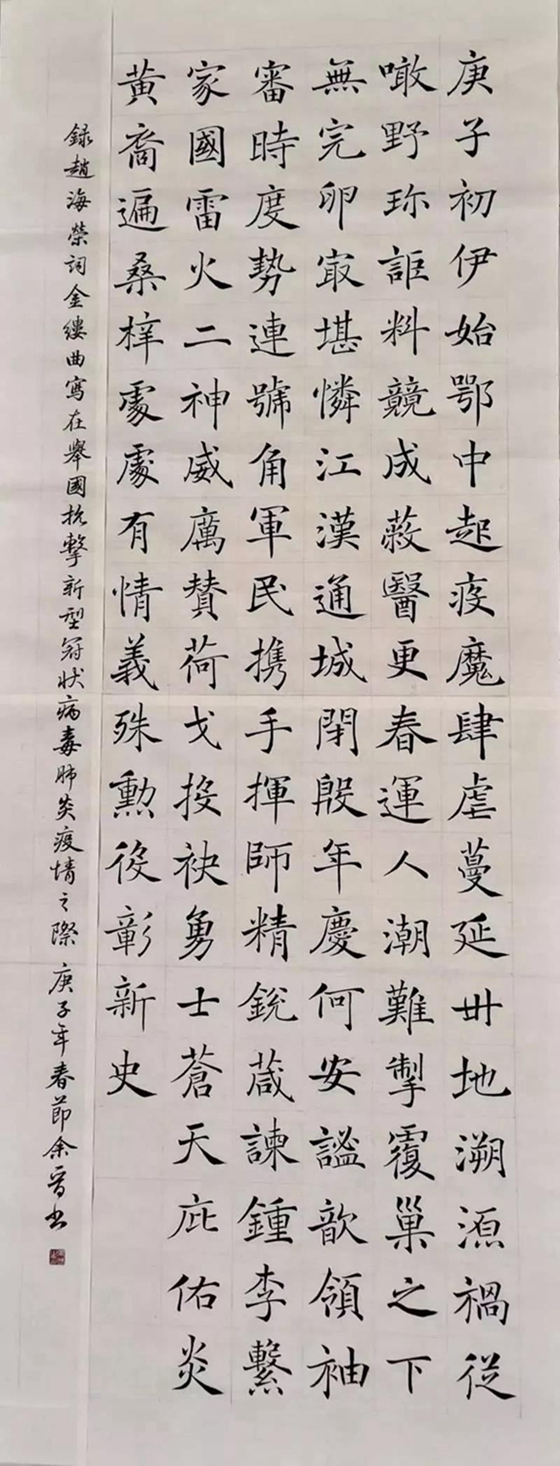 庚子初伊始鄂中起疫魔肆虐蔓延卅地溯源禍從
噉野珎詎料競成醫更春運人潮難掣覆巢之下
無完卵㝡堪憐江漢通城閉殷年慶何安謐歆領袖
審時度勢連號角軍民携手揮師精銳蕆諫鍾李繫
家國雷火二神威厲贊荷戈投袂勇士蒼天庇佑炎
黃裔遍桑梓處處有情義殊勳役彰新史
録趙海榮詞金縷曲寫在舉國抗擊新型冠狀病毒肺炎疫情之際 庚子年春節余書